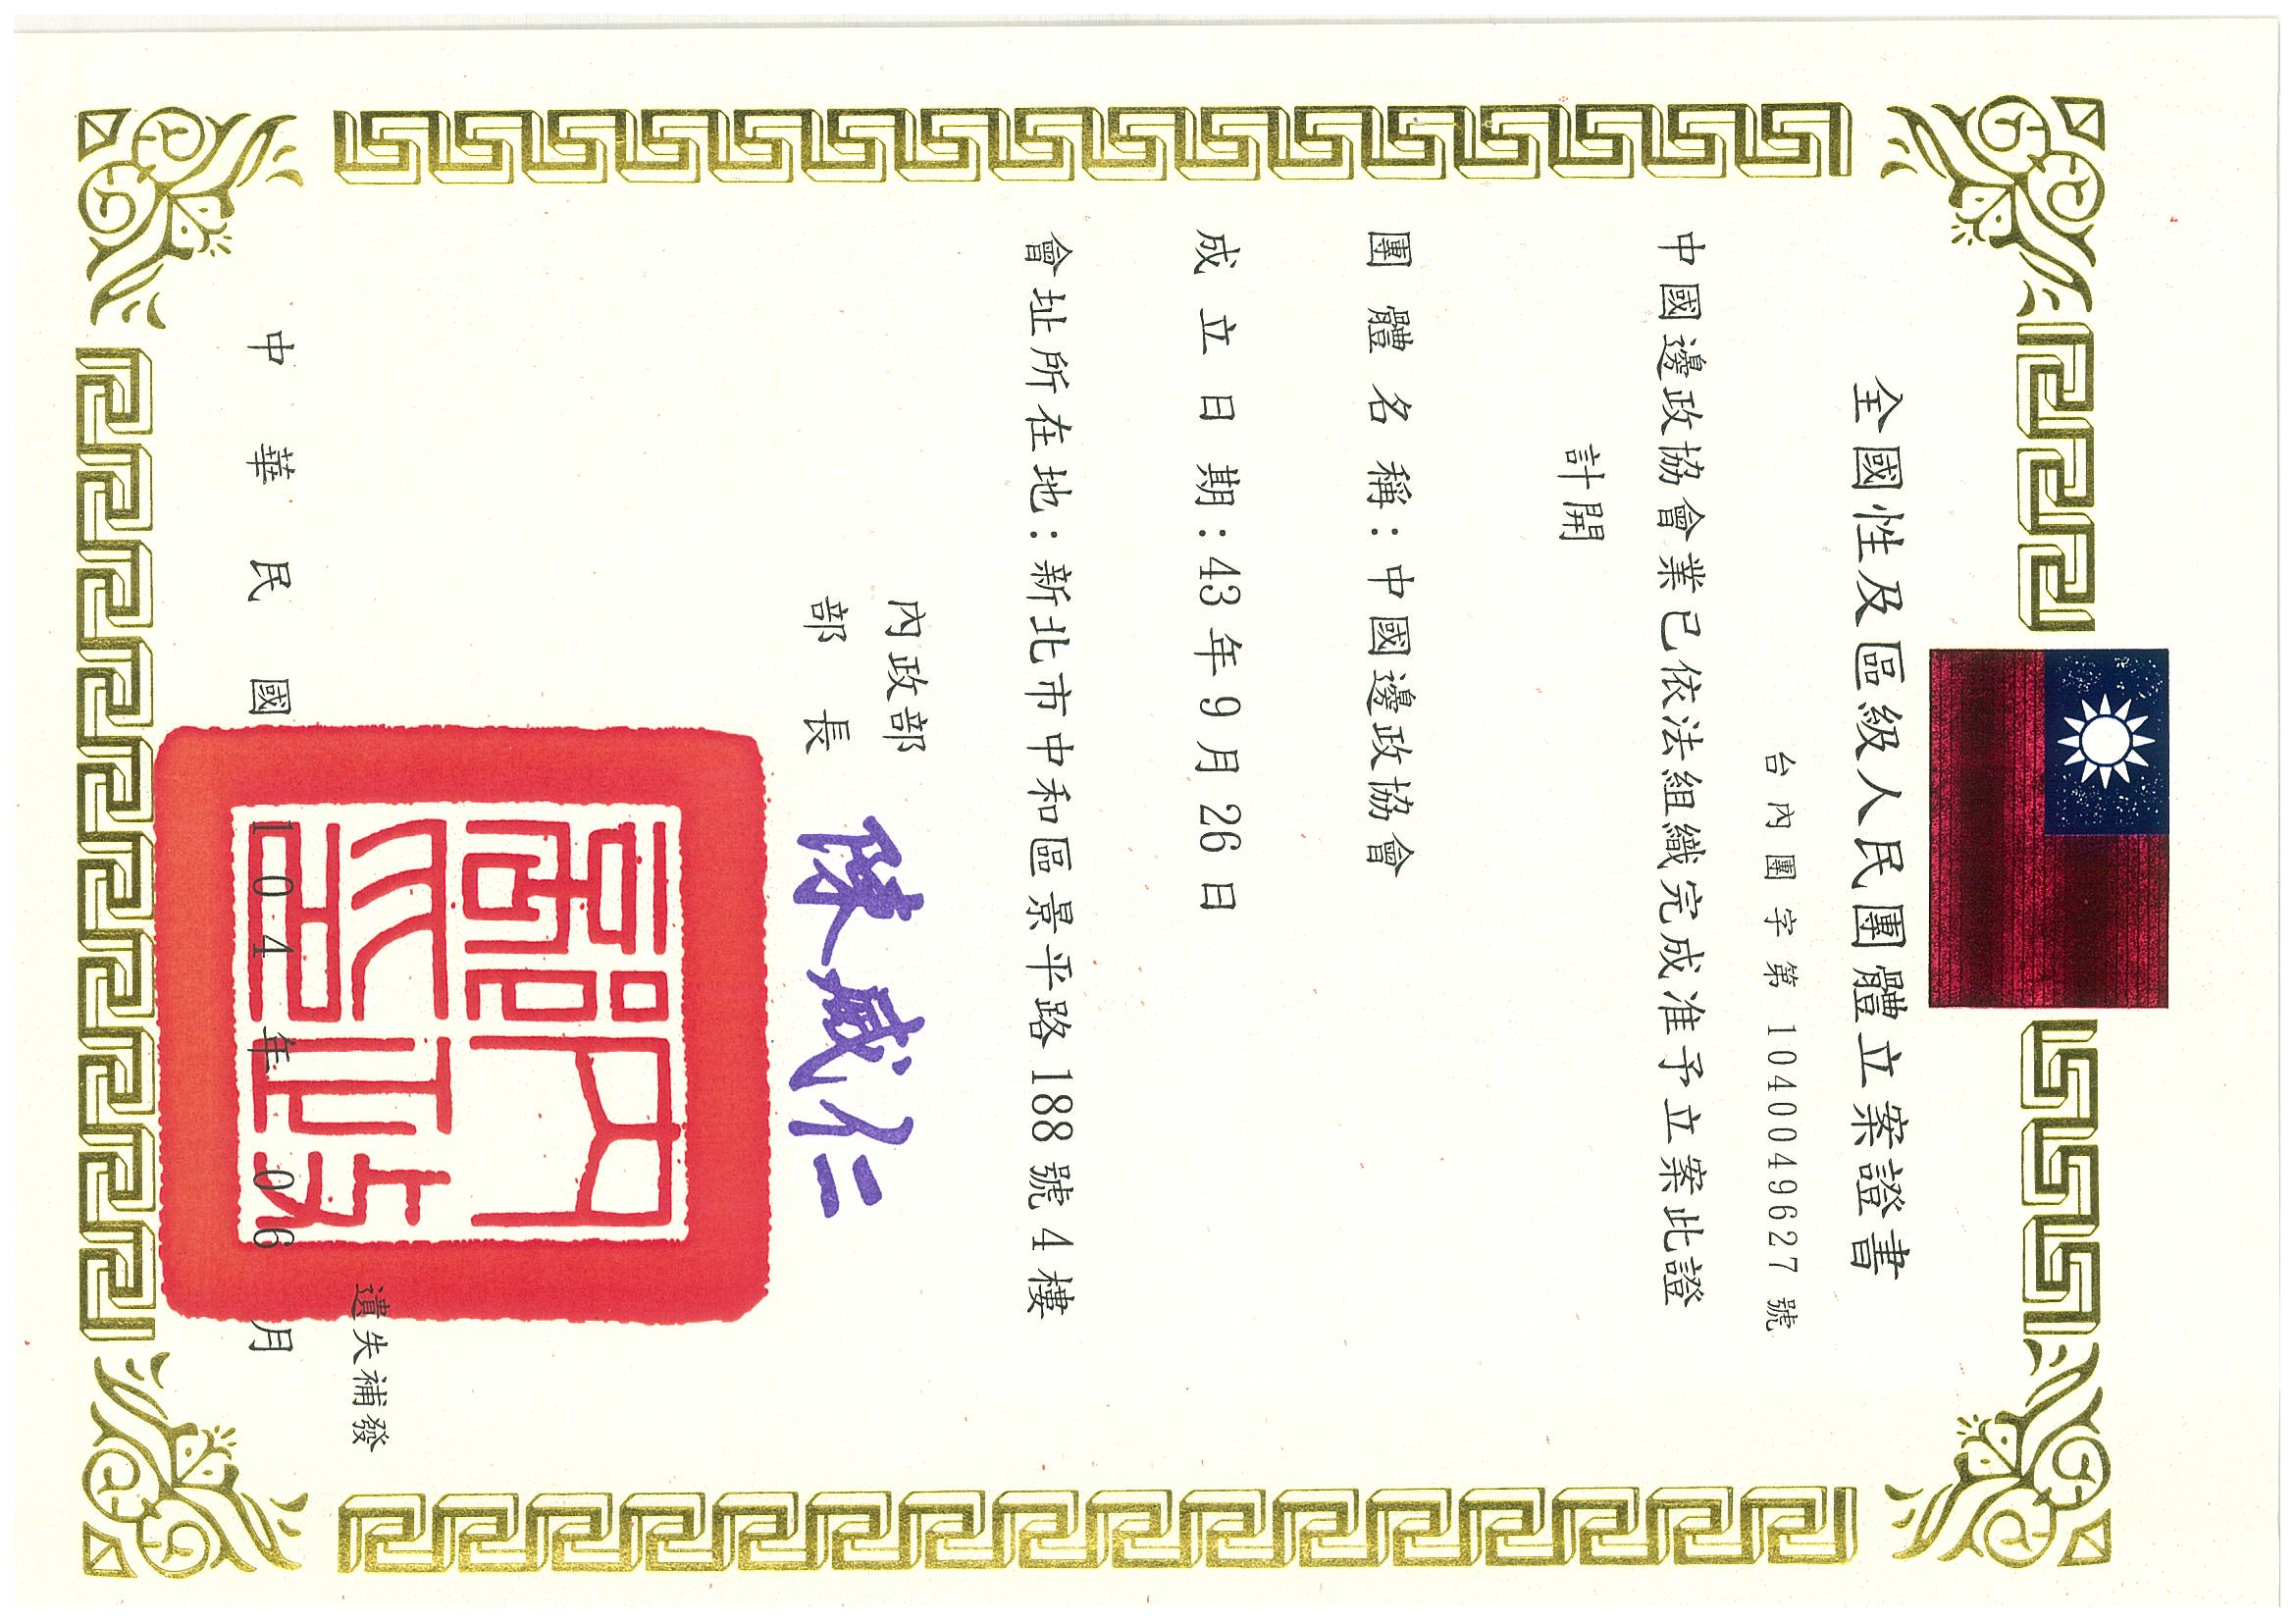 全國性及區級人民團體立案證書
台內團字第 1040049627 號
中國邊政協會業已依法組織完成准予立案此證
計開
團體名稱：中國邊政協會
成立日期：43年9月26日
會址所在地：新北市中和區景平路188號4樓
內政部
部長 陳威仁
內政部印
遺失補發
中華民國104年06月